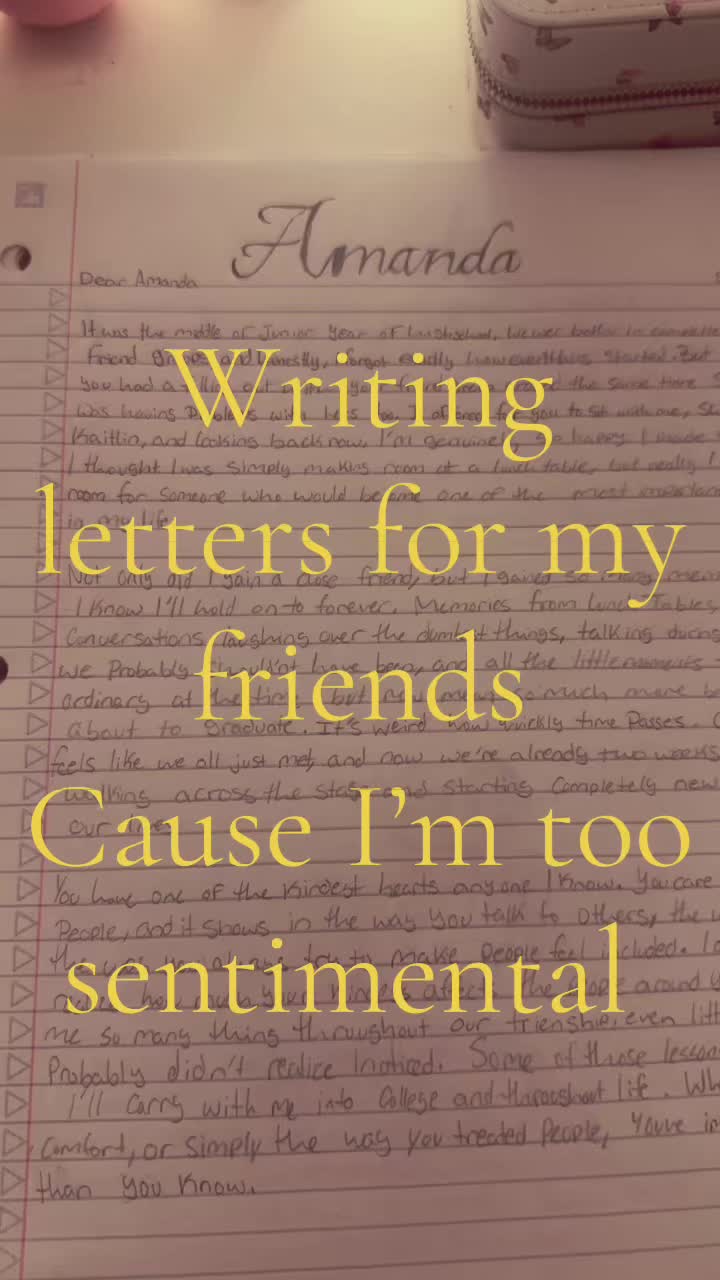 Amanda
Dear Amanda
It was the middle of Junior year of highschool, we wer both in
Friend groups and honestly, I forgot exactly how everything started. But
you had a falling out the same time
was having Problems with I offered for you to sit with me,
Kaitlin, and looking back now, I'm genuinely so happy I made
I thought I was simply making room at a lunch table, but really I
room for someone who would become one of the most important
in my life.
Writing
letters for my
friends
Cause I'm too
sentimental
Not only did I gain a close friend, but I gained so many mem
I know I'll hold on to forever. Memories from lunch Tables
Conversations, laughing over the dumbest things, talking during
we Probably shouldn't have been, and all the little moments
ordinary at the time but now mean so much more
about to graduate. It's weird how quickly time Passes.
feels like we all just met, and now we're already two weeks
walking across the stage and starting Completely new
our lives
You have one of the kindest hearts anyone I know. You care
People, and it shows in the way you talk to others, the
the way you always try to make People feel included. I
how much your kindness affects the people around
me so many thing throughout our frienship, even litt
Probably didn't realize I noticed. Some of those lesson
I'll Carry with me into College and throughout life. Wh
Comfort, or simply the way you treated People, Youve
than you know.